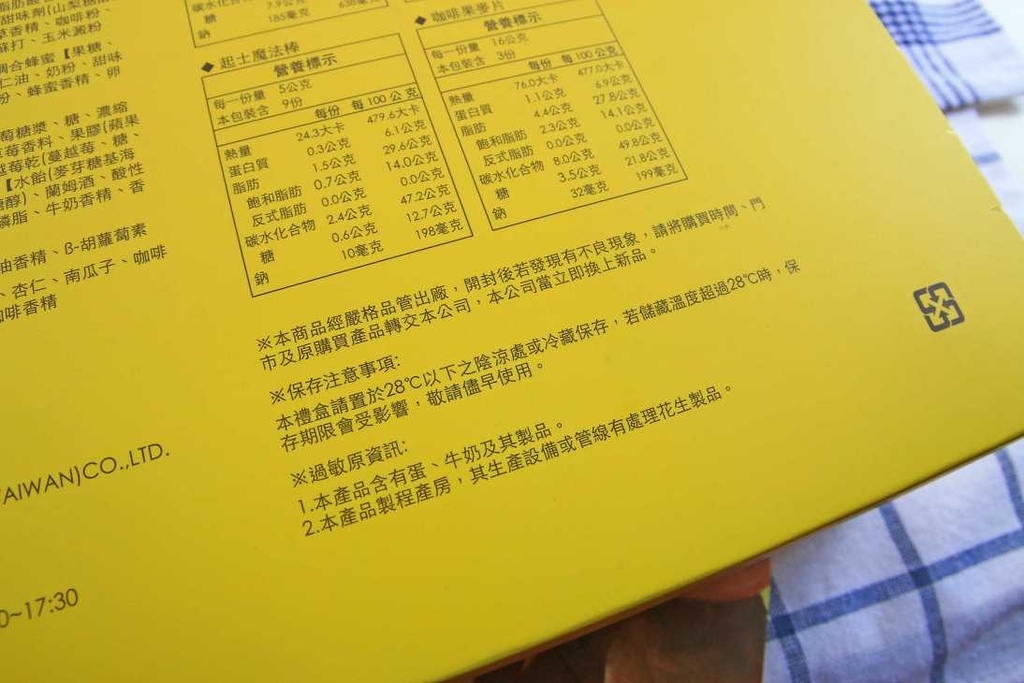 碳水化合物 7.9公克 638毫克
糖 185毫克
鈉
甜味劑(山梨糖醇
草香精、咖啡粉
蘇打、玉米澱粉
調合蜂蜜【果糖、
仁油、奶粉、甜味
粉、蜂蜜香精、卵
萄糖漿、糖、濃縮
草莓香料、果膠(蘋果
越莓乾(蔓越莓、糖、
【水飴(麥芽糖基海
糖醇)、蘭姆酒、酸性
磷脂、牛奶香精、香
油香精、β-胡蘿蔔素
、杏仁、南瓜子、咖啡
咖啡香精
◆ 起士魔法棒
營養標示
每一份量 5公克
本包裝含 9份
每份 每100公克
熱量 24.3大卡 479.6大卡
蛋白質 0.3公克 6.1公克
脂肪 1.5公克 29.6公克
飽和脂肪 0.7公克 14.0公克
反式脂肪 0.0公克 0.0公克
碳水化合物 2.4公克 47.2公克
糖 0.6公克 12.7公克
鈉 10毫克 198毫克
◆ 咖啡果麥片
營養標示
每一份量 16公克
本包裝含 3份
每份 每100公克
熱量 76.0大卡 477.0大卡
蛋白質 1.1公克 6.9公克
脂肪 4.4公克 27.8公克
飽和脂肪 2.3公克 14.1公克
反式脂肪 0.0公克 0.0公克
碳水化合物 8.0公克 49.8公克
糖 3.5公克 21.8公克
鈉 32毫克 199毫克
※本商品經嚴格品管出廠，開封後若發現有不良現象，請將購買時間、門
市及原購買產品轉交本公司，本公司當立即換上新品。
※保存注意事項:
本禮盒請置於28℃以下之陰涼處或冷藏保存，若儲藏溫度超過28℃時，保
存期限會受影響，敬請儘早使用。
※過敏原資訊:
1.本產品含有蛋、牛奶及其製品。
2.本產品製程產房，其生產設備或管線有處理花生製品。
AIWAN)CO.,LTD.
0~17:30